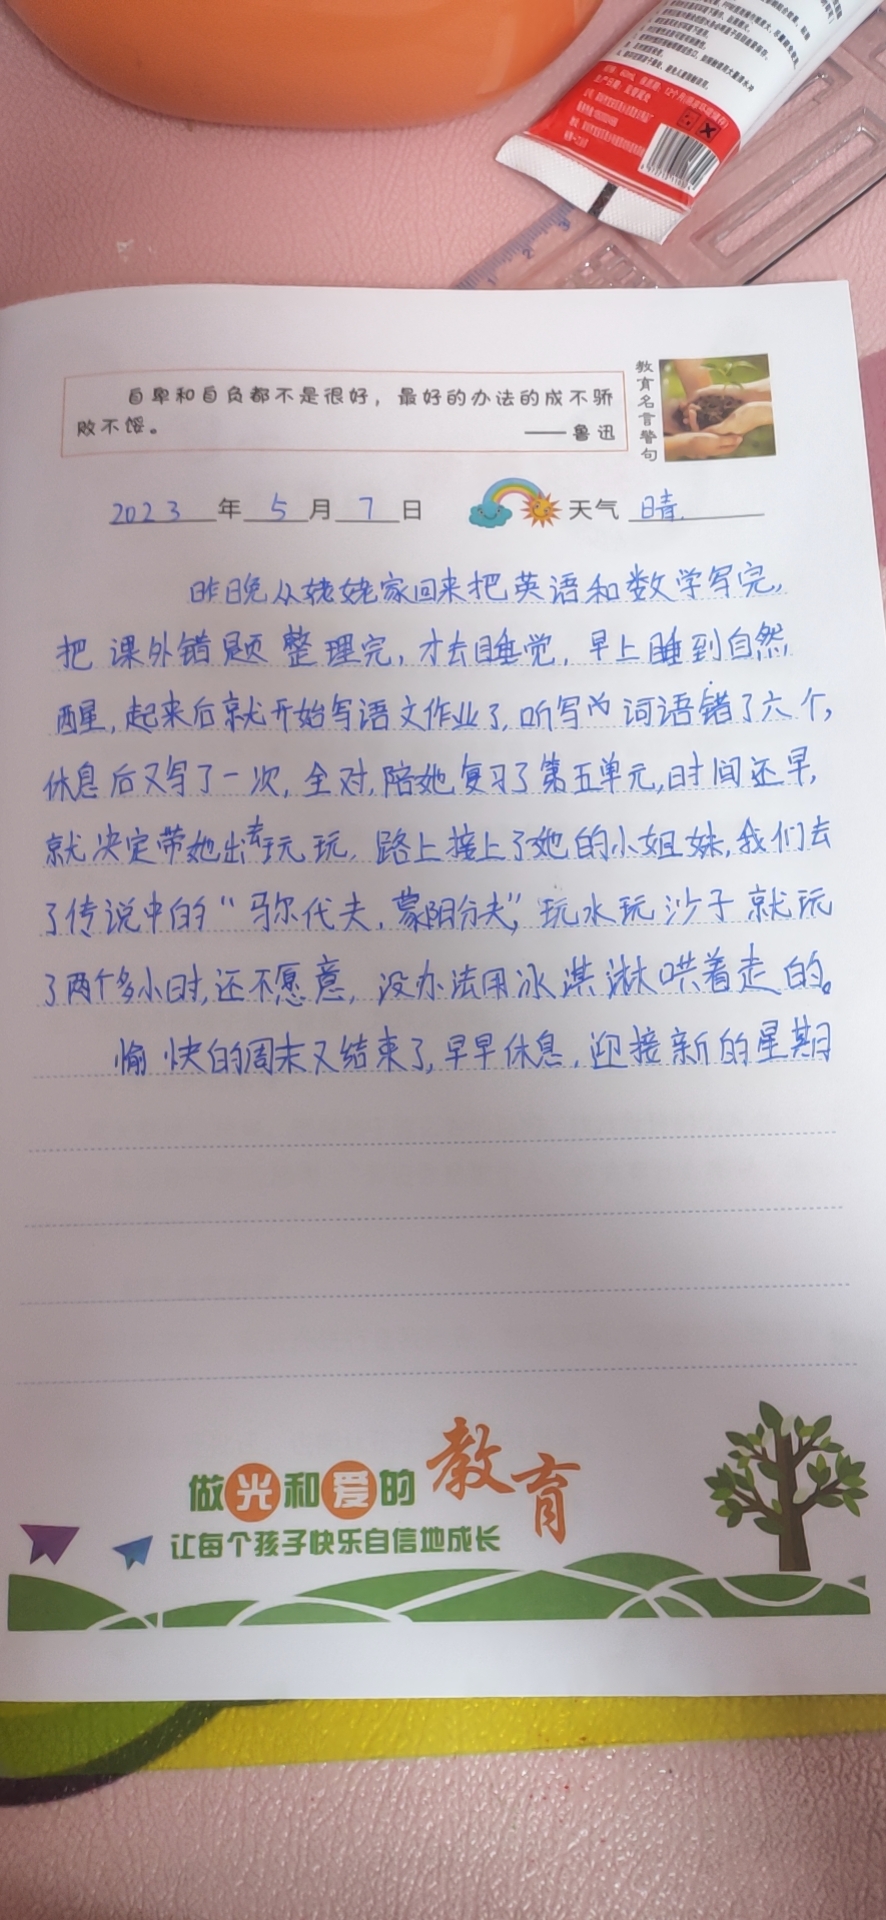 自卑和自负都不是很好，最好的办法的成不骄
败不馁。
——鲁迅
教育名言警句
2023年5月7日 天气 晴
昨晚从姥姥家回来把英语和数学写完，
把课外错题整理完，才去睡觉，早上睡到自然
醒，起来后就开始写语文作业了，听写的词语错了六个，
休息后又写了一次，全对，陪她复习了第五单元，时间还早，
就决定带她出去玩玩，路上接上了她的小姐妹，我们去
了传说中的“马尔代夫，蒙阳分夫”，玩水玩沙子就玩
了两个多小时，还不愿意，没办法用冰淇淋哄着走的。
愉快的周末又结束了，早早休息，迎接新的星期
做光和爱的教育
让每个孩子快乐自信地成长